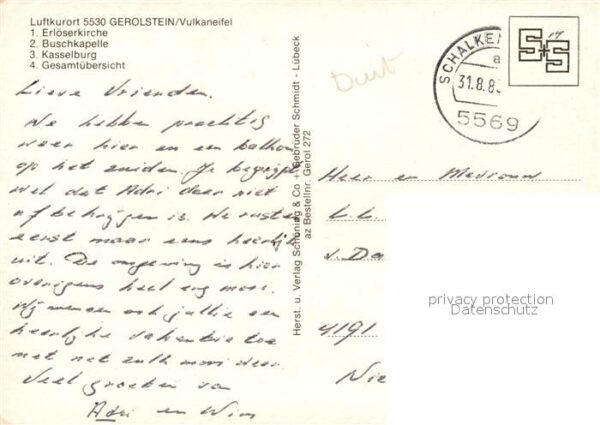 Luftkurort 5530 GEROLSTEIN/Vulkaneifel
1. Erlöserkirche
2. Buschkapelle
3. Kasselburg
4. Gesamtübersicht
Lieve Vrienden.
We hebben prachtig
weer hier en een balkon
op het zuiden. Je begrijpt
wel dat Adri daar niet
af te krijgen is. We rusten
eerst maar eens heerlijk
uit. De omgeving is hier
overigens heel erg mooi.
Wij wensen ook jullie een
heerlijke vakantie toe
met net zulk mooi weer.
Veel groeten van
Adri en Wim
Herst. u. Verlag Schöning & Co + Gebrüder Schmidt - Lübeck
az Bestellnr. Gerol 272
SCHALKEN
a
31.8.8
5569
S+S
Heer en Mevrouw
v. Da
4191
Nie
privacy protection
Datenschutz